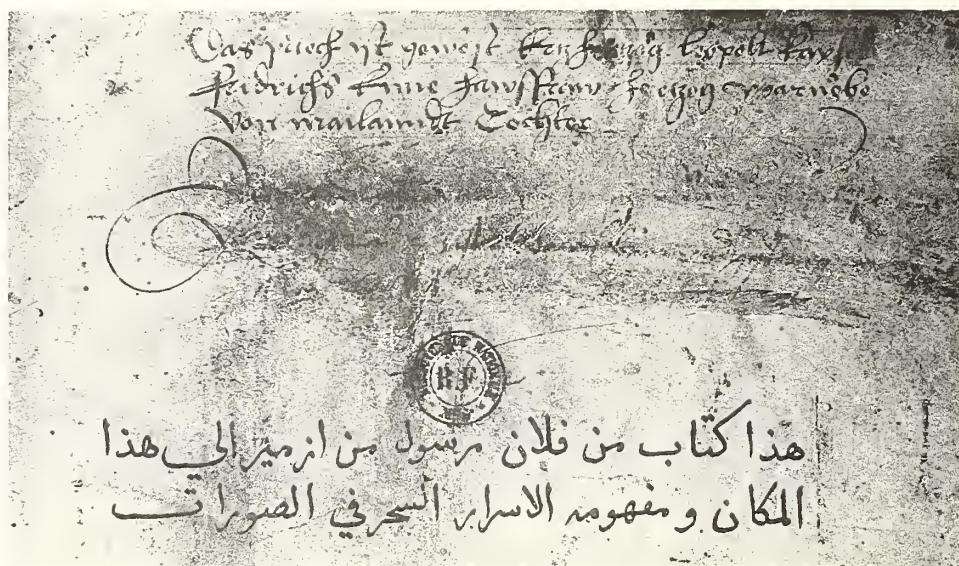 Das puech yst gewest herzog leopolt kay
fridrichs enne hawsfraw herczog warnebe
von mailanndt Tochter
R F
هذا كتاب من فلان مرسول من ازمير الي هذا
المكان و مفهومه الاسرار السحر في الصورات